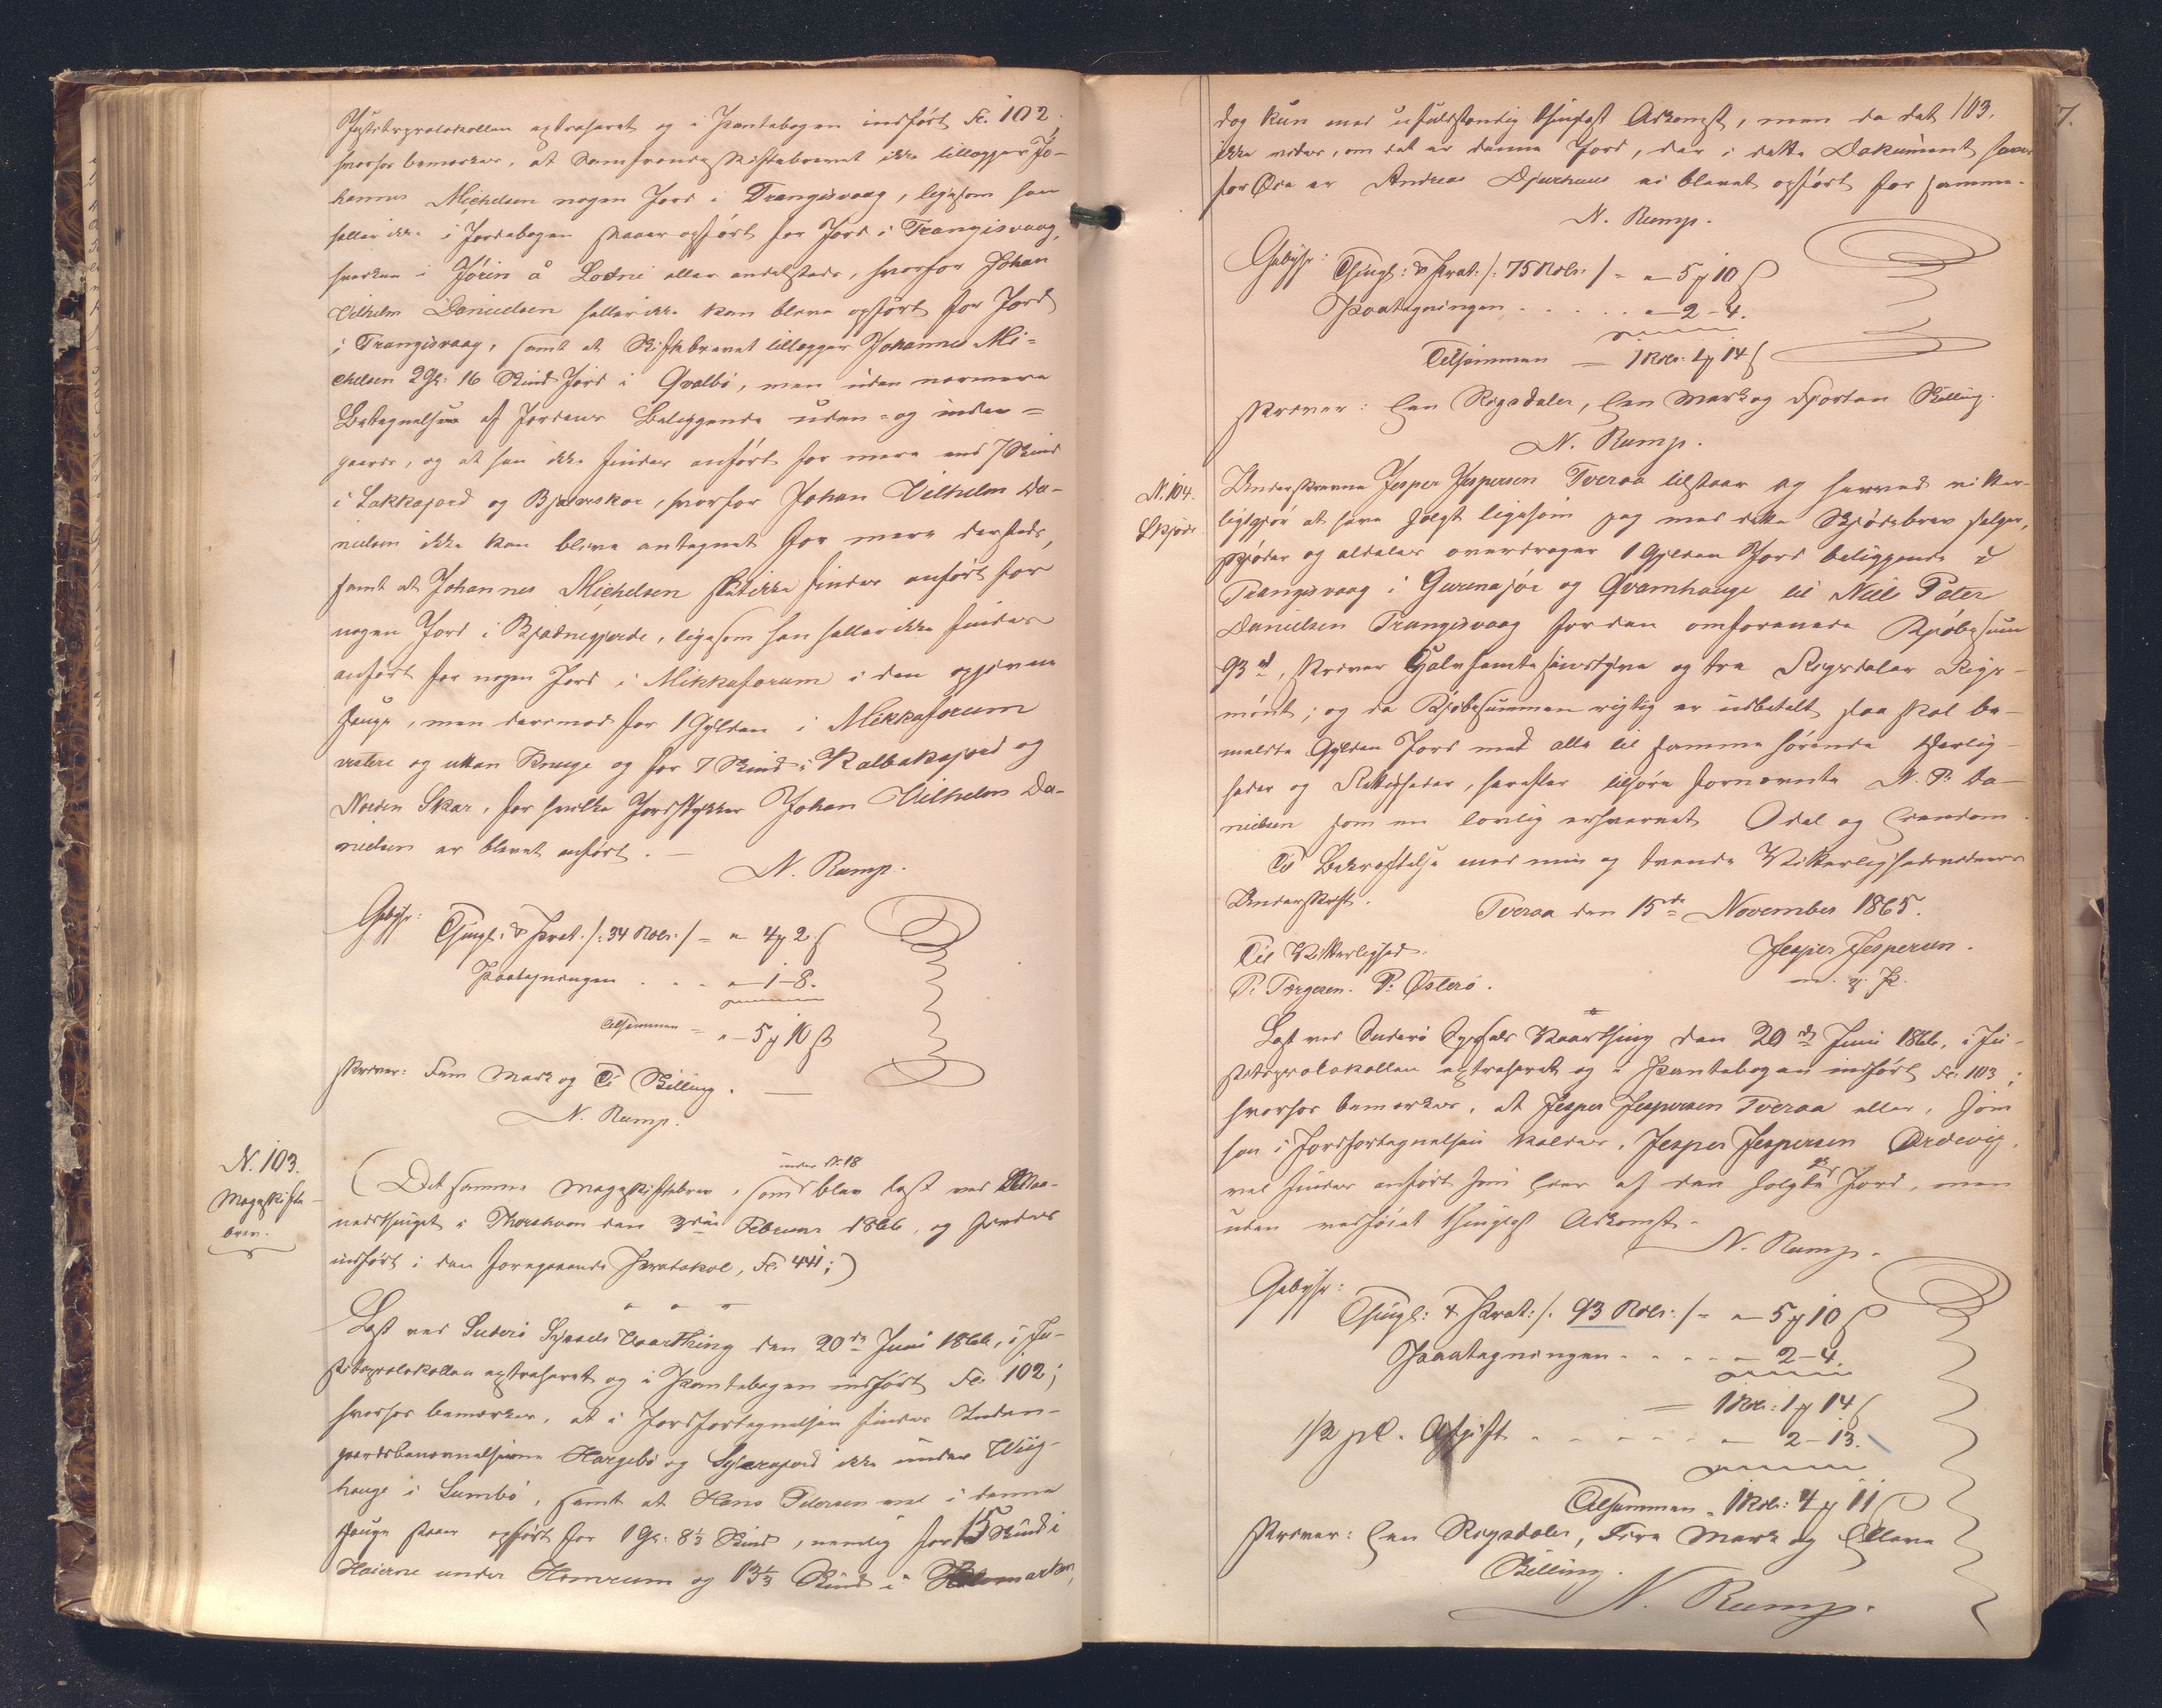 Justitsprotokollen extraheret og i Pantebogen indført Fo. 102.
hvorfor bemærkes, at Samfrende Skiftebrevet ikke tillægger Jo-
hannes Michelsen nogen Jord i Trangisvaag, ligesom han
heller ikke i Jordebogen staaer opført for Jord i Trangisvaag,
hverken i Jórin å Lodni eller andetsteds, hvorfor Johan
Vilhelm Danielsen heller ikke kan blive opført for Jord
i Trangisvaag, samt at Skiftebrevet tillægger Johannes Mi-
chelsen 2 Gl: 16 Skind Jord i Qvalbö, men uden nærmere
Betegnelse af Jordens Beliggende uden- og inden-
gaards, og at han ikke findes anført for mere end 7 Skind
i Lakkajord og Bjadnskor, hvorfor Johan Vilhelm Da-
nielsen ikke kan blive antegnet for mere dersteds,
samt at Johannes Michelsen slet ikke findes anført for
nogen Jord i Bjadnegjærde, ligesom han heller ikke findes
anført for nogen Jord i Mikkaforum i den opgivne
Hauge, men derimod for 1 Gylden i Mikkaforum
vestere og uttan Knuge og for 7 Skind i Kalbakajord og
Norden Skar, for hvilke Jordstykker Johan Vilhelm Da-
nielsen er blevet anført. —
N. Rump.
Gebyr:
Thingl: & Prot: /: 34 Rdlr: / = " 4 ℳ 2 ß
Paategningen . . . " - 1 - 8.
Tilsammen = " - 5 ℳ 10 ß
skriver: Fem Mark og Ti Skilling. —
N. Rump.
N. 103.
Mageskifte-
brev.
under N. 18
(Det samme Mageskiftebrev, som blev læst ved Maa-
nedsthinget i Thorshavn den 3die Februar 1866, og findes
indført i den foregaaende Protokol, Fo. 441;)
Læst ved Suderö Syssels Vaarthing den 20de Juni 1866, i Ju-
stitsprotokollen extraheret og i Pantebogen indført Fo. 102;
hvorfor bemærkes, at i Jordfortegnelsen findes Inden-
gaardsbenævnelserne Hargebö og Sylarajord ikke under Wiig-
hauge i Sumbö, samt at Hans Petersen vel i denne
Hauge staaer opført for 1 Gl. 8⅓ Skind, nemlig for 15 Skind i
Haierne under Homrum og 13⅓ Skind i Heimarken,
103.
dog kun med ufuldstændig thinglæst Adkomst, men da det
ikke vides, om det er denne Jord, der i dette Dokument haves
for Øie er Andreas Djurhuus ei blevet opført for samme.
N. Rump.
Gebyr:
Thingl: & Prot: /: 75 Rdlr: / = " - 5 ℳ 10 ß
Paategningen . . . . . " - 2 - 4.
Tilsammen = 1 Rdlr: 2 ℳ 14 ß
skriver: Een Rigsdaler, Een Mark og Fjorten Skilling.
N. Rump.
N. 104.
Skjöde
Underskrevne Jesper Jespersen Tveraa tilstaaer og herved vitter-
ligtgjør at have solgt ligesom jeg med dette Skjødebrev sælger,
skjøder og aldeles overdrager 1 Gylden Jord beliggende i
Trangisvaag i Gurenajör og Qvamhauge til Niels Peter
Danielsen Trangisvaag for den omforenede Kjøbesum
93 rd, skriver Halvfemtesindstyve og tre Rigsdaler Rigs-
mönt; og da Kjøbesummen rigtig er udbetalt saa skal be-
meldte Gylden Jord med alle til samme hörende Herlig-
heder og Rettigheder, herefter tilhøre fornævnte N. P. Da-
nielsen som en lovlig erhvervet Odel og Eiendom.
Til Bekræftelse med min og tvende Vitterlighedsvidners
Underskrift.
Tveraa den 15de November 1865.
Til Vitterlighed.
Jesper Jespersen.
P. Tørgesen. P. Østerö.
m. f. P.
Læst ved Suderö Syssels Vaarthing den 20de Juni 1866, i Ju-
stitsprotokollen extraheret og i Pantebogen indført Fo. 103;
hvorfor bemærkes, at Jesper Jespersen Tveraa eller, som
han i Jordfortegnelsen kaldes, Jesper Jespersen Ørdevig,
vel findes anført som Eier af den solgte Jord, men
uden vedföiet thinglæst Adkomst.
N. Rump.
Gebyr:
Thingl: & Prot: /: 93 Rdlr: / = " - 5 ℳ 10 ß
Paategningen . . . . - 2 - 4.
= 1 Rdlr: 1 ℳ 14 ß
1/2 pC. Afgift . . . . . . - 2 - 13.
Tilsammen = 1 Rdlr: 4 ℳ 11 ß
skriver: Een Rigsdaler, Fire Mark og Elleve
Skilling.
N. Rump.